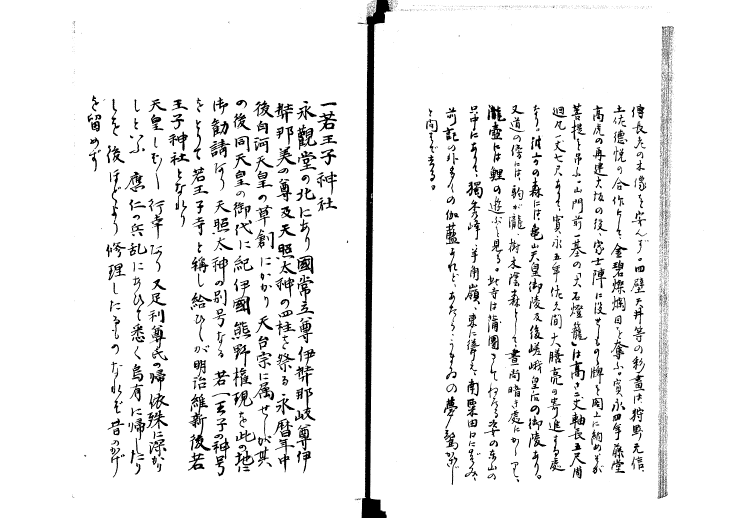 傅長兵の木像を安んず。四壁天井等の彩畫は狩野元信、
土佐德悦の合作にして金碧燦爛目を奪ふ。寛永四年藤堂
高虎の再建大坂の後、家士陣に没せしもの牌を閣上に納めそが
菩提を吊ふ。山門前一基の「石燈籠」は高さ二丈軸長五尺周
廻九尺七尺あり。寛永五年佐久間大膳亮の寄進する處
なり。法古の森には亀山天皇御陵及後嵯峨皇后の御陵あり。
又道の傍には、駒が瀧、樹木陰森として晝尚暗き處にかゝり、
瀧壺には鯉の遊ぶを見る。此寺は蒲團きてねたる姿の東山の
中にあり、獨秀峰、羊角嶺、東に聳え、南粟田口にのぞみ、
前記の外多くの伽藍
と聞え
一若王子神社
永觀堂の北にあり國常立尊伊弉那岐尊伊
弉那美の尊及天照太神の四柱を祭る永暦年中
後白河天皇の草創にかかり天台宗に属せしが其
の後同天皇の御代に紀伊國熊野権現を此の地に
御勧請なり天照太神の別号なる若一王子の神号
をとりて若王子寺と稱し給ひしが明治維新後若
王子神社となれり
天皇しばしば行幸なり又足利尊氏の帰依殊に深かり
しといふ應仁の兵乱にあひて悉く烏有に帰したり
しを後ほどより修理したるものなれば昔のかげ
を留めず